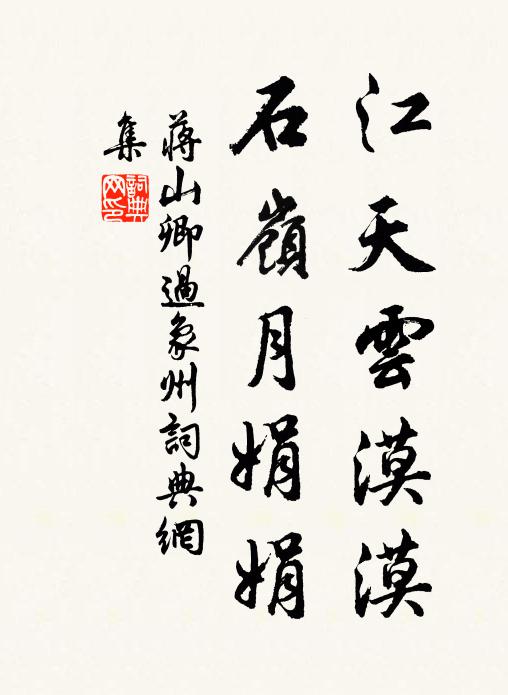 江天雲漠漠
石嶺月娟娟
蔣山卿過象州詞典網
集
詞典
网印